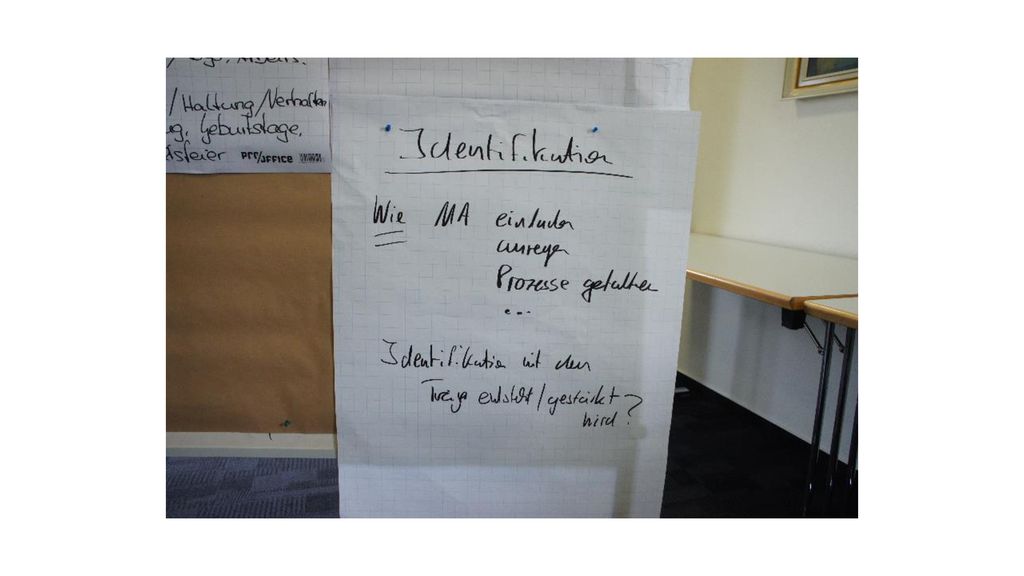 /Haltung/Verhalten
Geburtstage,
pro/office
Identifikation
Wie MA einladen
anregen
Prozesse gestalten
...
Identifikation mit dem
Träger entsteht/gestärkt
wird?